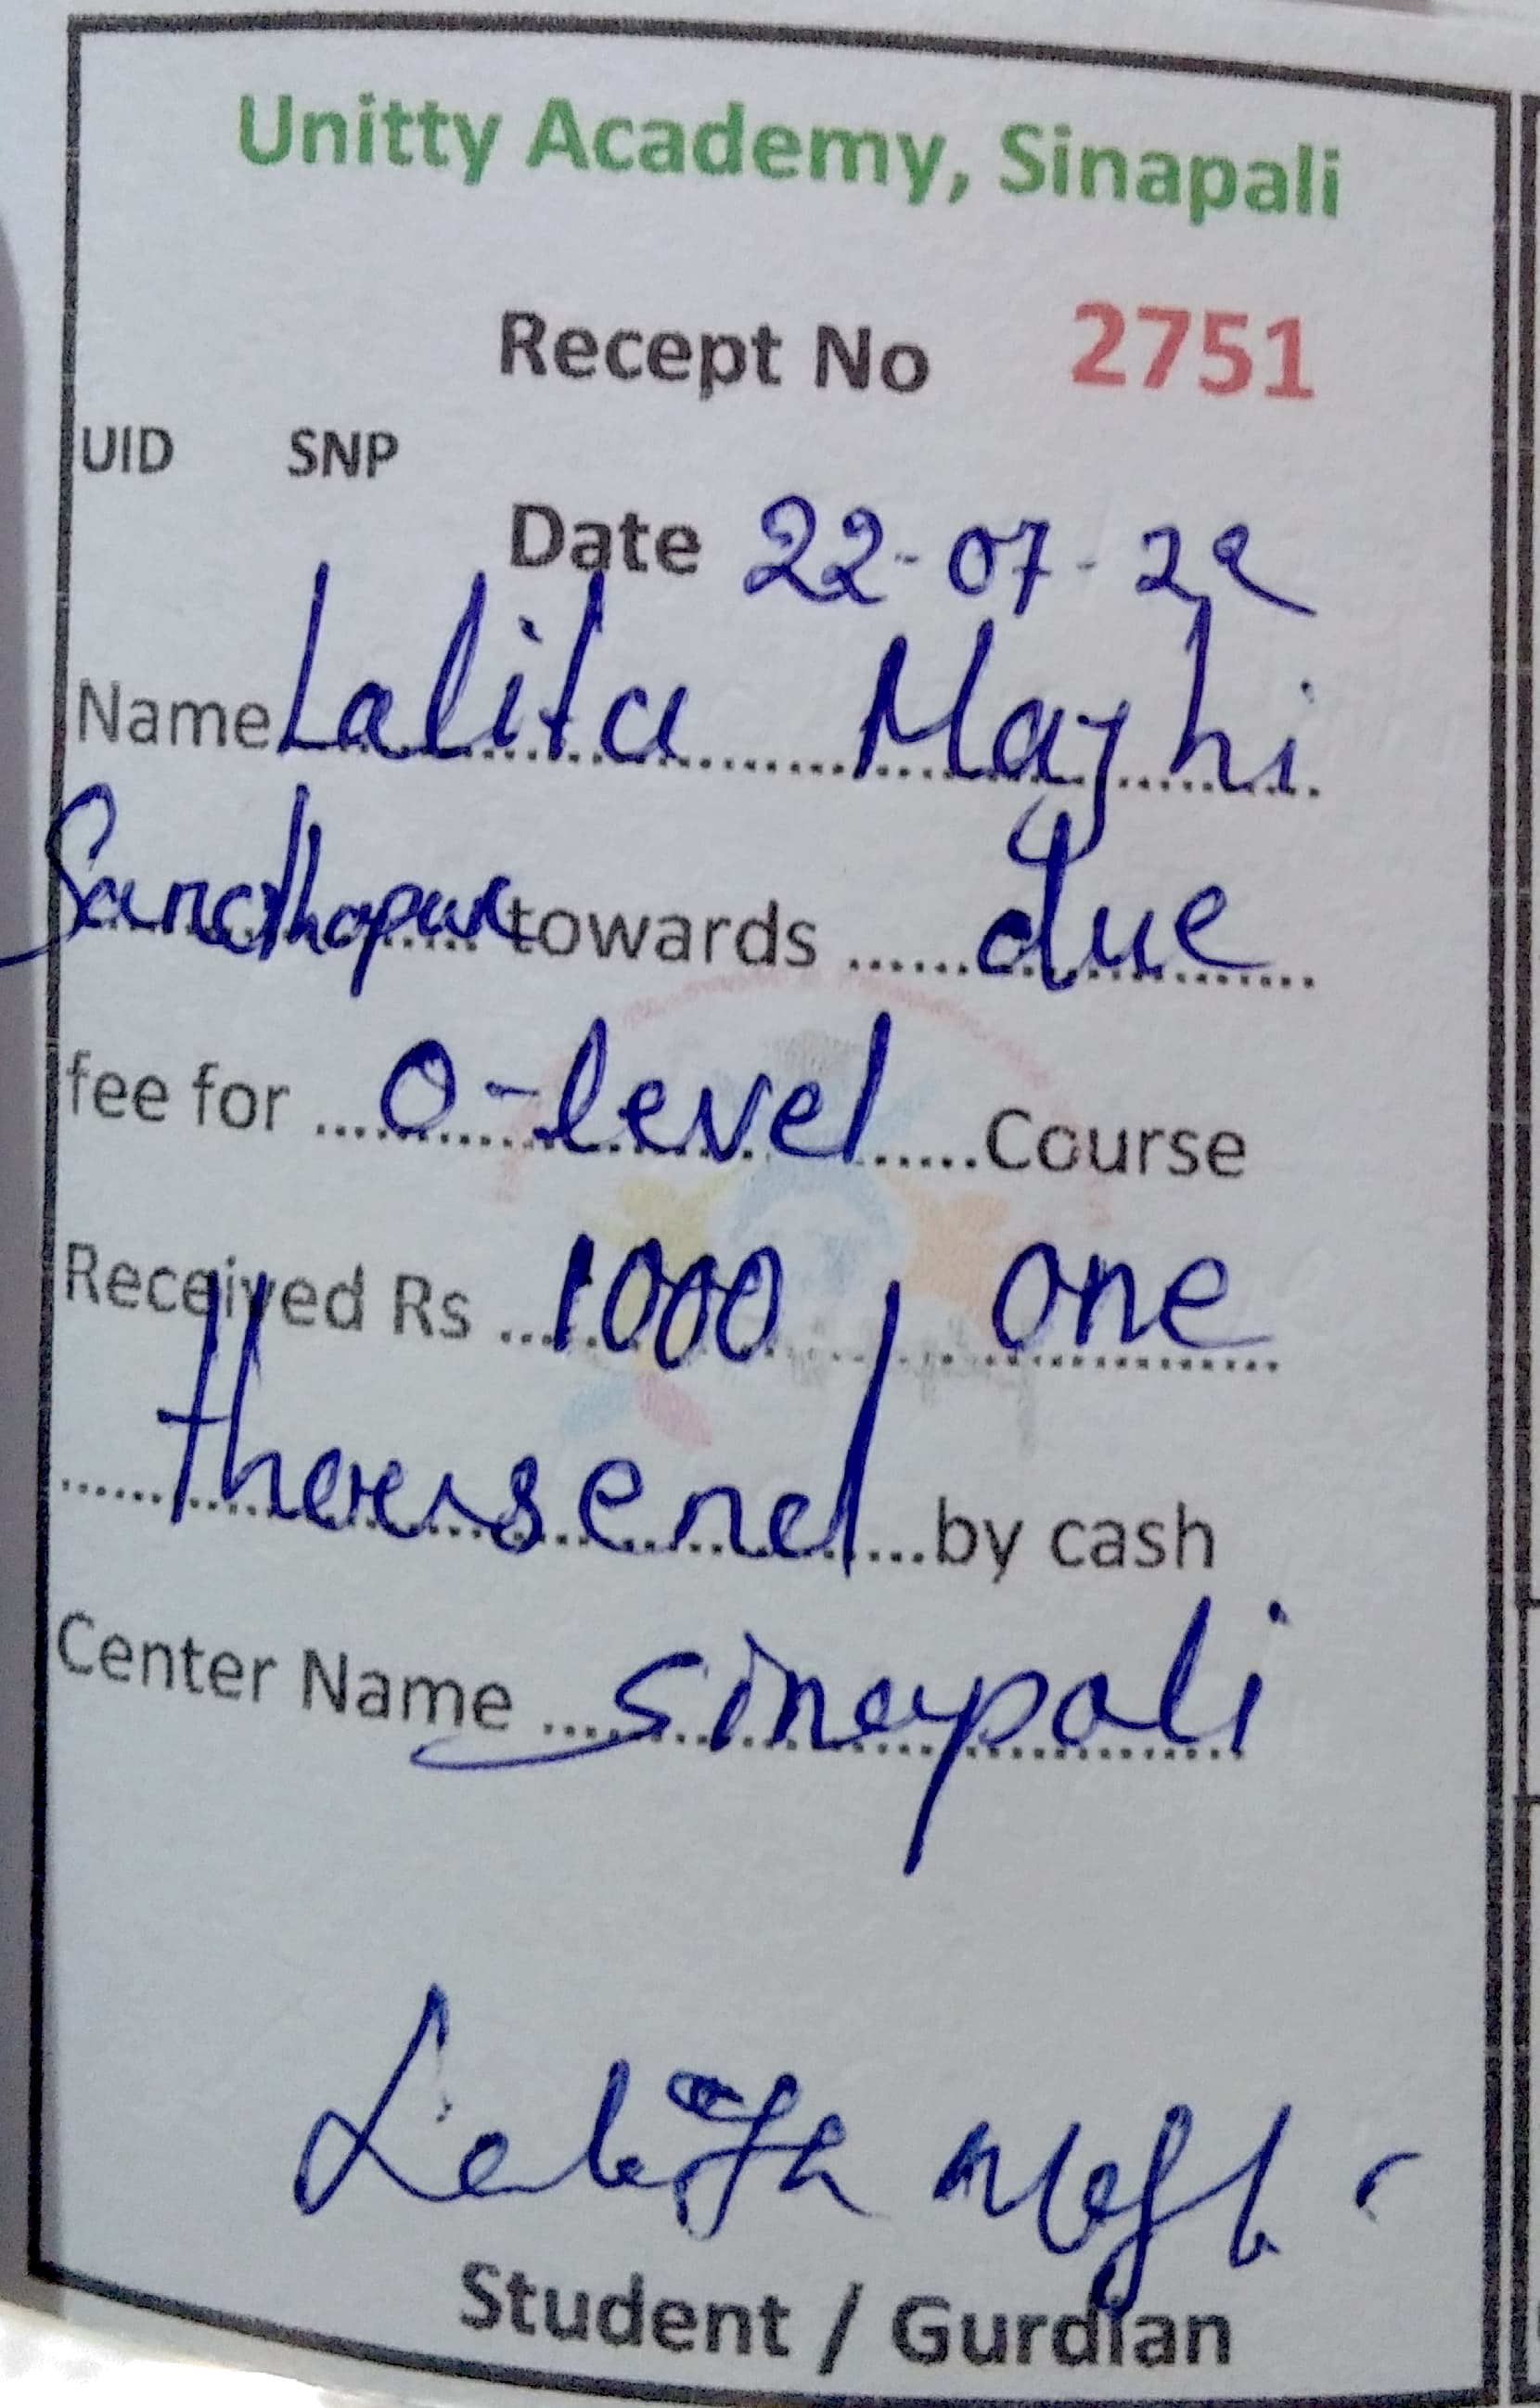 Unitty Academy, Sinapali
Recept No 2751
UID SNP
Date 22-07-22
Name Lalita Majhi
towards ...... due ......
fee for ... O-level ...... Course
Received Rs ... 1000, one
...... thousend ... by cash
Center Name ... Sinapali
Lalita Majhi
Student / Gurdian